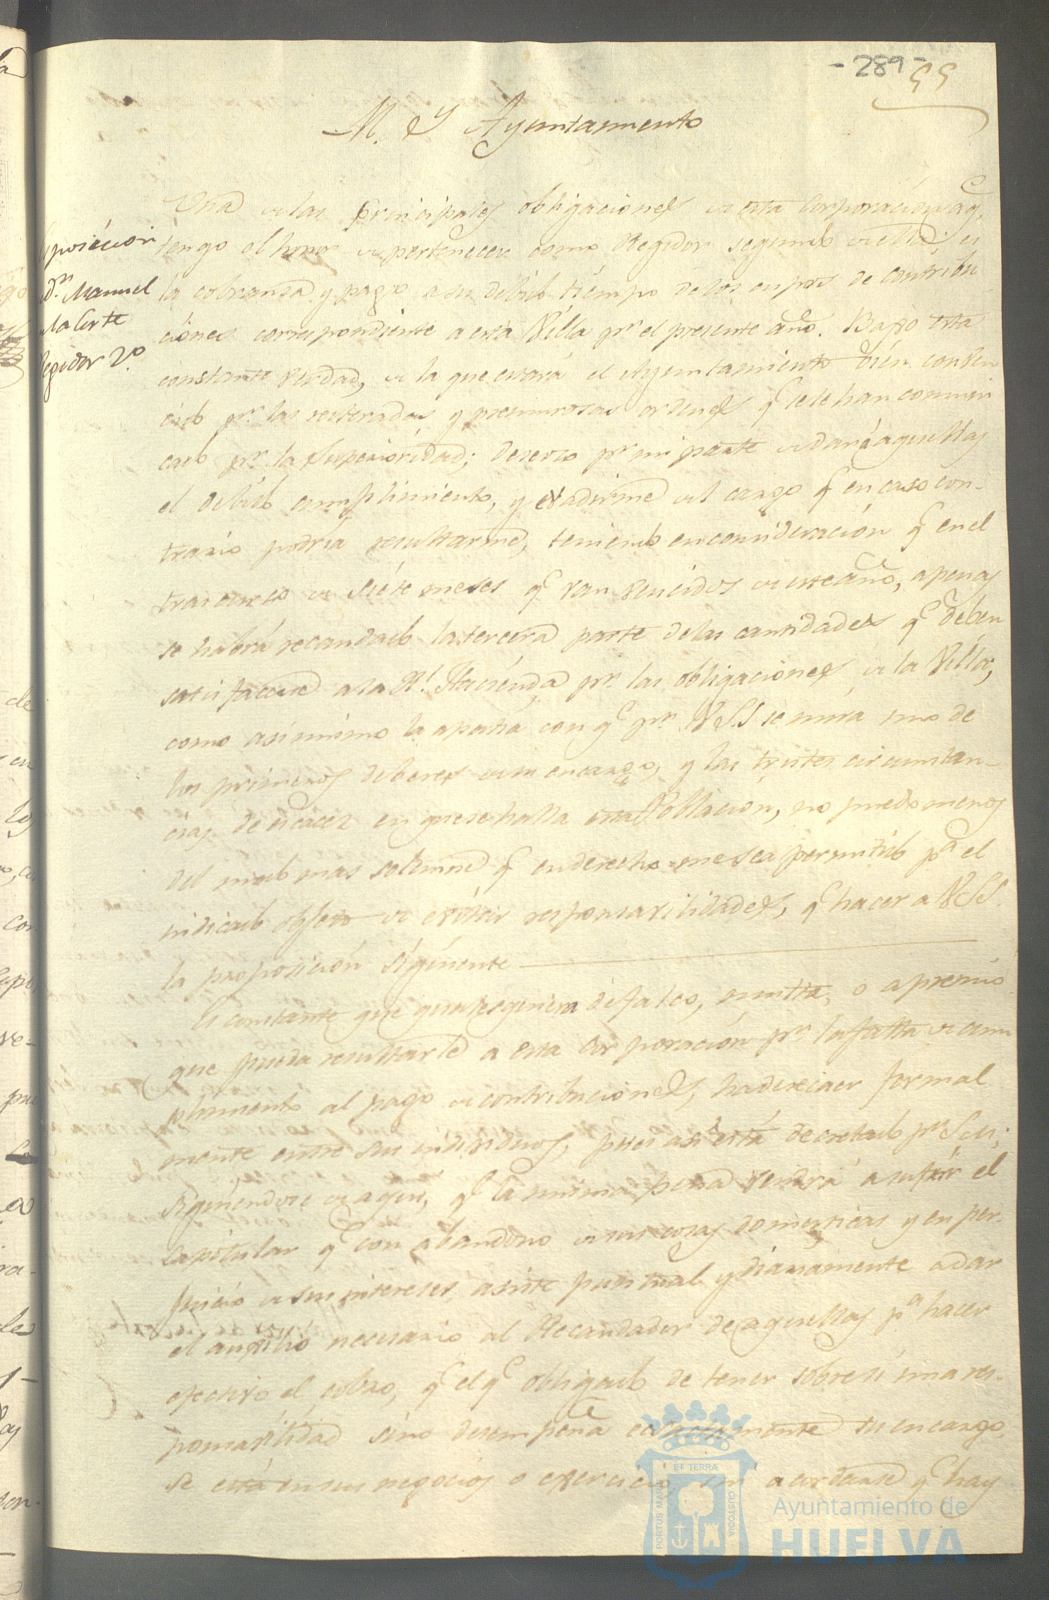 -289-
55
M. Y Ayuntamiento
Una de las principales obligaciones de esta Corporacion a q.e
tengo el honor de pertenecer como Regidor segundo de ella, es
la cobranza y pago a su debido tiempo de los cupos de contribu
ciones correspondiente a esta Villa p.r el presente año. Bajo esta
constante verdad, de la que estará el Ayuntamiento bien conven
cido p.r las reiteradas y premurosas ordenes q.e se le han comuni
cado p.r la Superioridad; deseoso p.r mi parte de dar á aquellas
el debido cumplimiento, y evadirme del cargo q.e en caso con-
trario podria resultarme, teniendo en consideracion q.e en el
trascurso de siete meses q.e van vencidos de este año, apenas
se habrá recaudado la tercera parte de las cantidades q.e deben
satisfacerse a la R.l Hacienda p.r las obligaciones de la Villa;
como asimismo la apatia con q.e p.r V.S.S se mira uno de
los primeros deberes de su encargo, y las tristes circunstan-
cias de escacez en que se halla esta Poblacion, no puedo menos
del modo mas solemne q.e en derecho me sea permitido p.a el
indicado objeto de evitar responsavilidades, q.e hacer a V.S.S.
la proposicion siguiente
Es constante que qualesquiera desfalco, multa, o apremio
que pueda resultarle a esta Corporacion p.r la falta de cum
plimiento al pago de contribuciones, ha de recaer formal
mente entre sus individuos, pues asi está decretado p.r S.M.;
siguiendose de aqui, q.e la misma pena vendrá a sufrir el
capitular q.e con abandono de sus cosas domesticas y en per-
juicio de sus intereses asiste puntual y diariamente a dar
el auxilio necesario al Recaudador de aquellas p.a hacer
efectivo el cobro, q.e el q.e obligado de tener sobre si una res-
ponsavilidad sino desempeña exactamente su encargo,
se está en sus negocios o exercicio, sin acordarse q.e hay
posicion
d.n Manuel
de la Corte
Regidor 2.o
PORTUS MARIS
ET TERRÆ
CUSTODIA
Ayuntamiento de
HUELVA